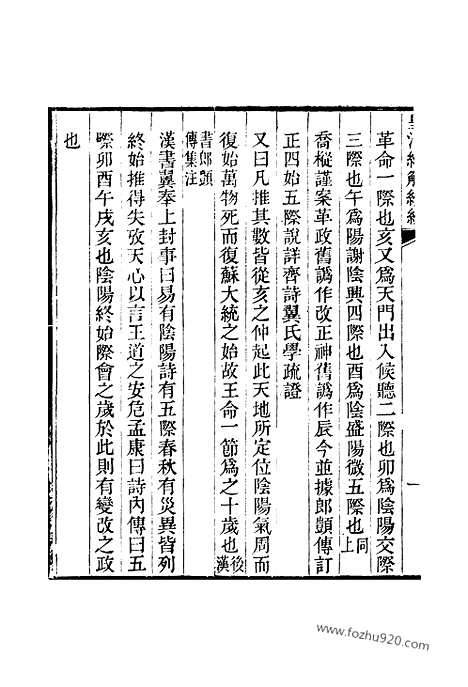 皇清經解續編
革命一際也亥又爲天門出入候聽二際也卯爲陰陽交際
三際也午爲陽謝陰興四際也酉爲陰盛陽微五際也同上
喬樅謹案革政舊譌作改正神舊譌作辰今並據郞顗傳訂
正四始五際說詳齊詩翼氏學疏證
又曰凡推其數皆從亥之仲起此天地所定位陰陽氣周而
復始萬物死而復蘇大統之始故王命一節爲之十歲也後漢
書郞顗
傳集注
漢書翼奉上封事曰易有陰陽詩有五際春秋有災異皆列
終始推得失攷天心以言王道之安危孟康曰詩內傳曰五
際卯酉午戌亥也陰陽終始際會之歲於此則有變改之政
也
www.fozhu920.com